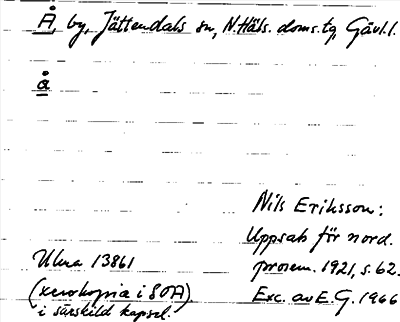 Å, by, Jättendals sn, N. Häls. doms.tg, Gävl.l.
å
Nils Eriksson:
Uppsats för nord.
prosem. 1921, s. 62.
Exc. av E.G. 1966
Uhra 13861
(xerokopia i SOA)
i särskild kapsel